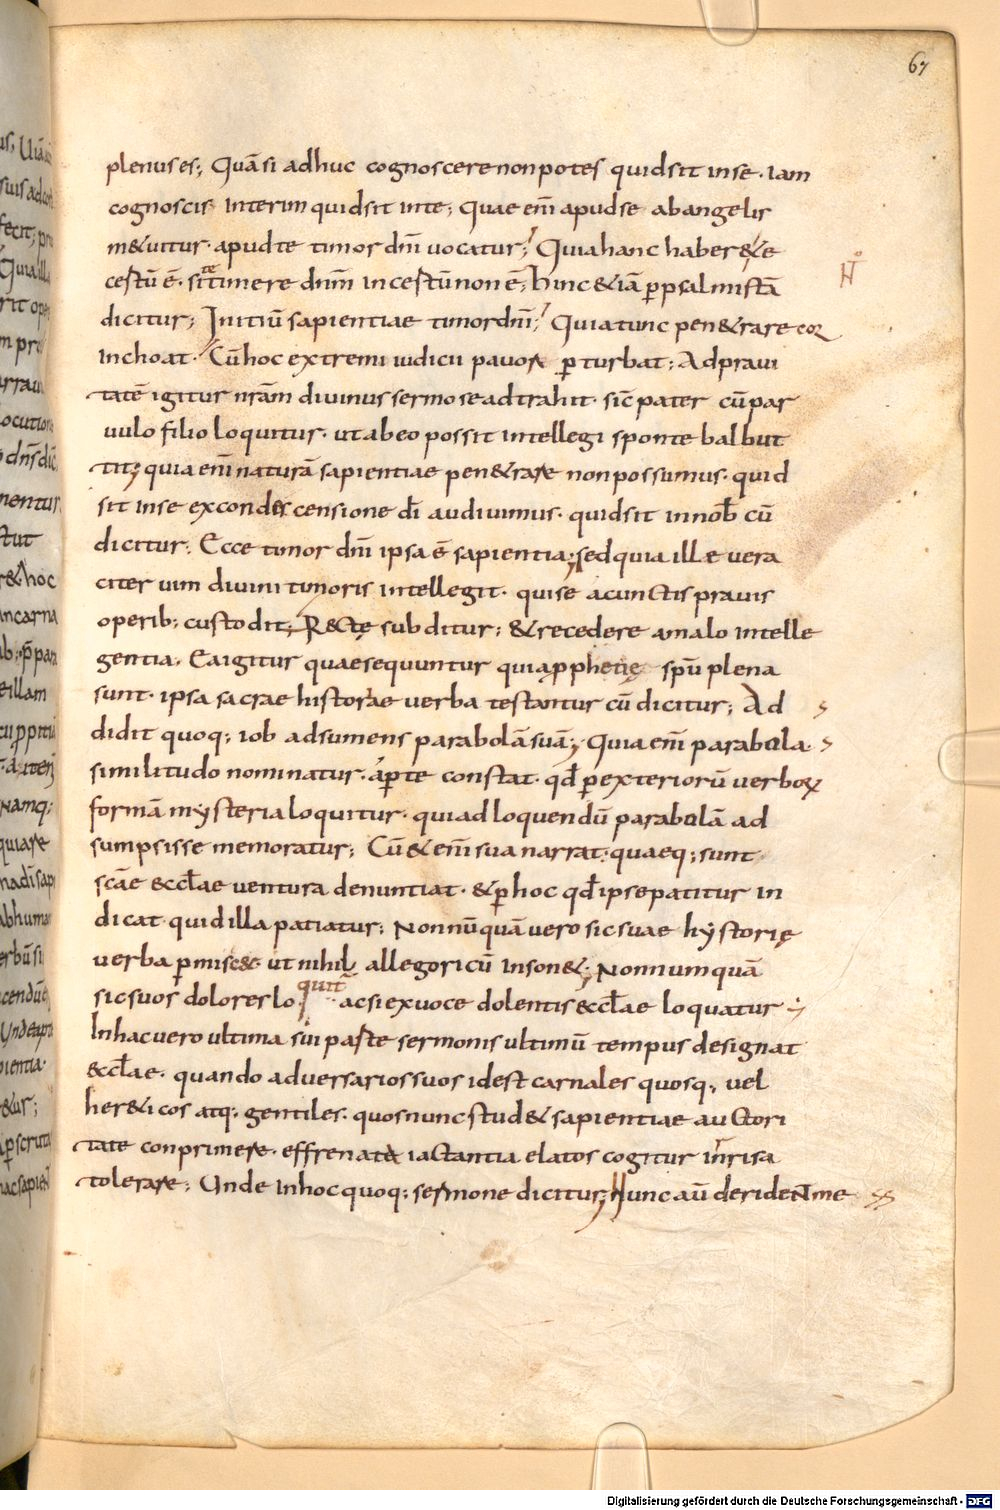 67
plenus es; Quā si adhuc cognoscere non potes quid sit in se. iam
cognoscis interim quid sit in te; Quae eni͞ apud se ab angelis
m&uitur. apud te timor dn͞i uocatur; Quia hanc haber&e
certū ē. si te timere dn͞m incertū non ē; Hinc &iā p̱ psalmistā
dicitur; Initiū sapientiae timor dn͞i; Quia tunc pen&rare cor
inchoat. Cū hoc extremi iudicii pauore p̱turbat; Ad praui
tatē igitur nr͞am diuinus sermo se adtrahit. sic͞ pater cū par
uulo filio loquitur. ut ab eo possit intellegi sponte balbut
tit; quia eni͞ naturā sapientiae pen&rare non possumus. quid
sit in se ex condescensione di͞ audiuimus. quid sit in nob̄ cū
dicitur; Ecce timor dn͞i ipsa ē sapientia; sed quia ille uera
citer uim diuini timoris intellegit. qui se a cunctis prauis
operib; custodit; R&cte subditur; & recedere a malo intelle
gentia. Ea igitur quae sequuntur quia pphetię spū plena
sunt. ipsa sacrae historiae uerba testantur cū dicitur; Ad
didit quoq; iob adsumens parabolā suā; Quia eni͞ parabola
similitudo nominatur. ap̱te constat. qd̄ p̱ exteriorū uerboꝝ
formā mysteria loquitur. qui ad loquendū parabolā ad
sumpsisse memoratur; Cū &eni͞ sua narrat. quaeq; sunt
scāe eccl̄ae uentura denuntiat. & p̱ hoc qd̄ ipse patitur in
dicat quid illa patiatur; Nonnūquā uero sic suae hystorię
uerba p̱misc&. ut nihil allegoricū inson&; Nonnumquā
sic suos dolores loquit͞ acsi ex uoce dolentis eccl̄ae loquatur;
In hac uero ultima sui parte sermonis ultimū tempus designat
eccl̄ae. quando aduersarios suos idest carnales quosq; uel
her&icos atq; gentiles. quos nunc stud& sapientiae auctori
tate conprimere. effrenata iactantia elatos cogitur inrisa
tolerare; Unde in hoc quoq; sermone dicitur; Nunc aū derideNt me
Digitalisierung gefördert durch die Deutsche Forschungsgemeinschaft - DFG